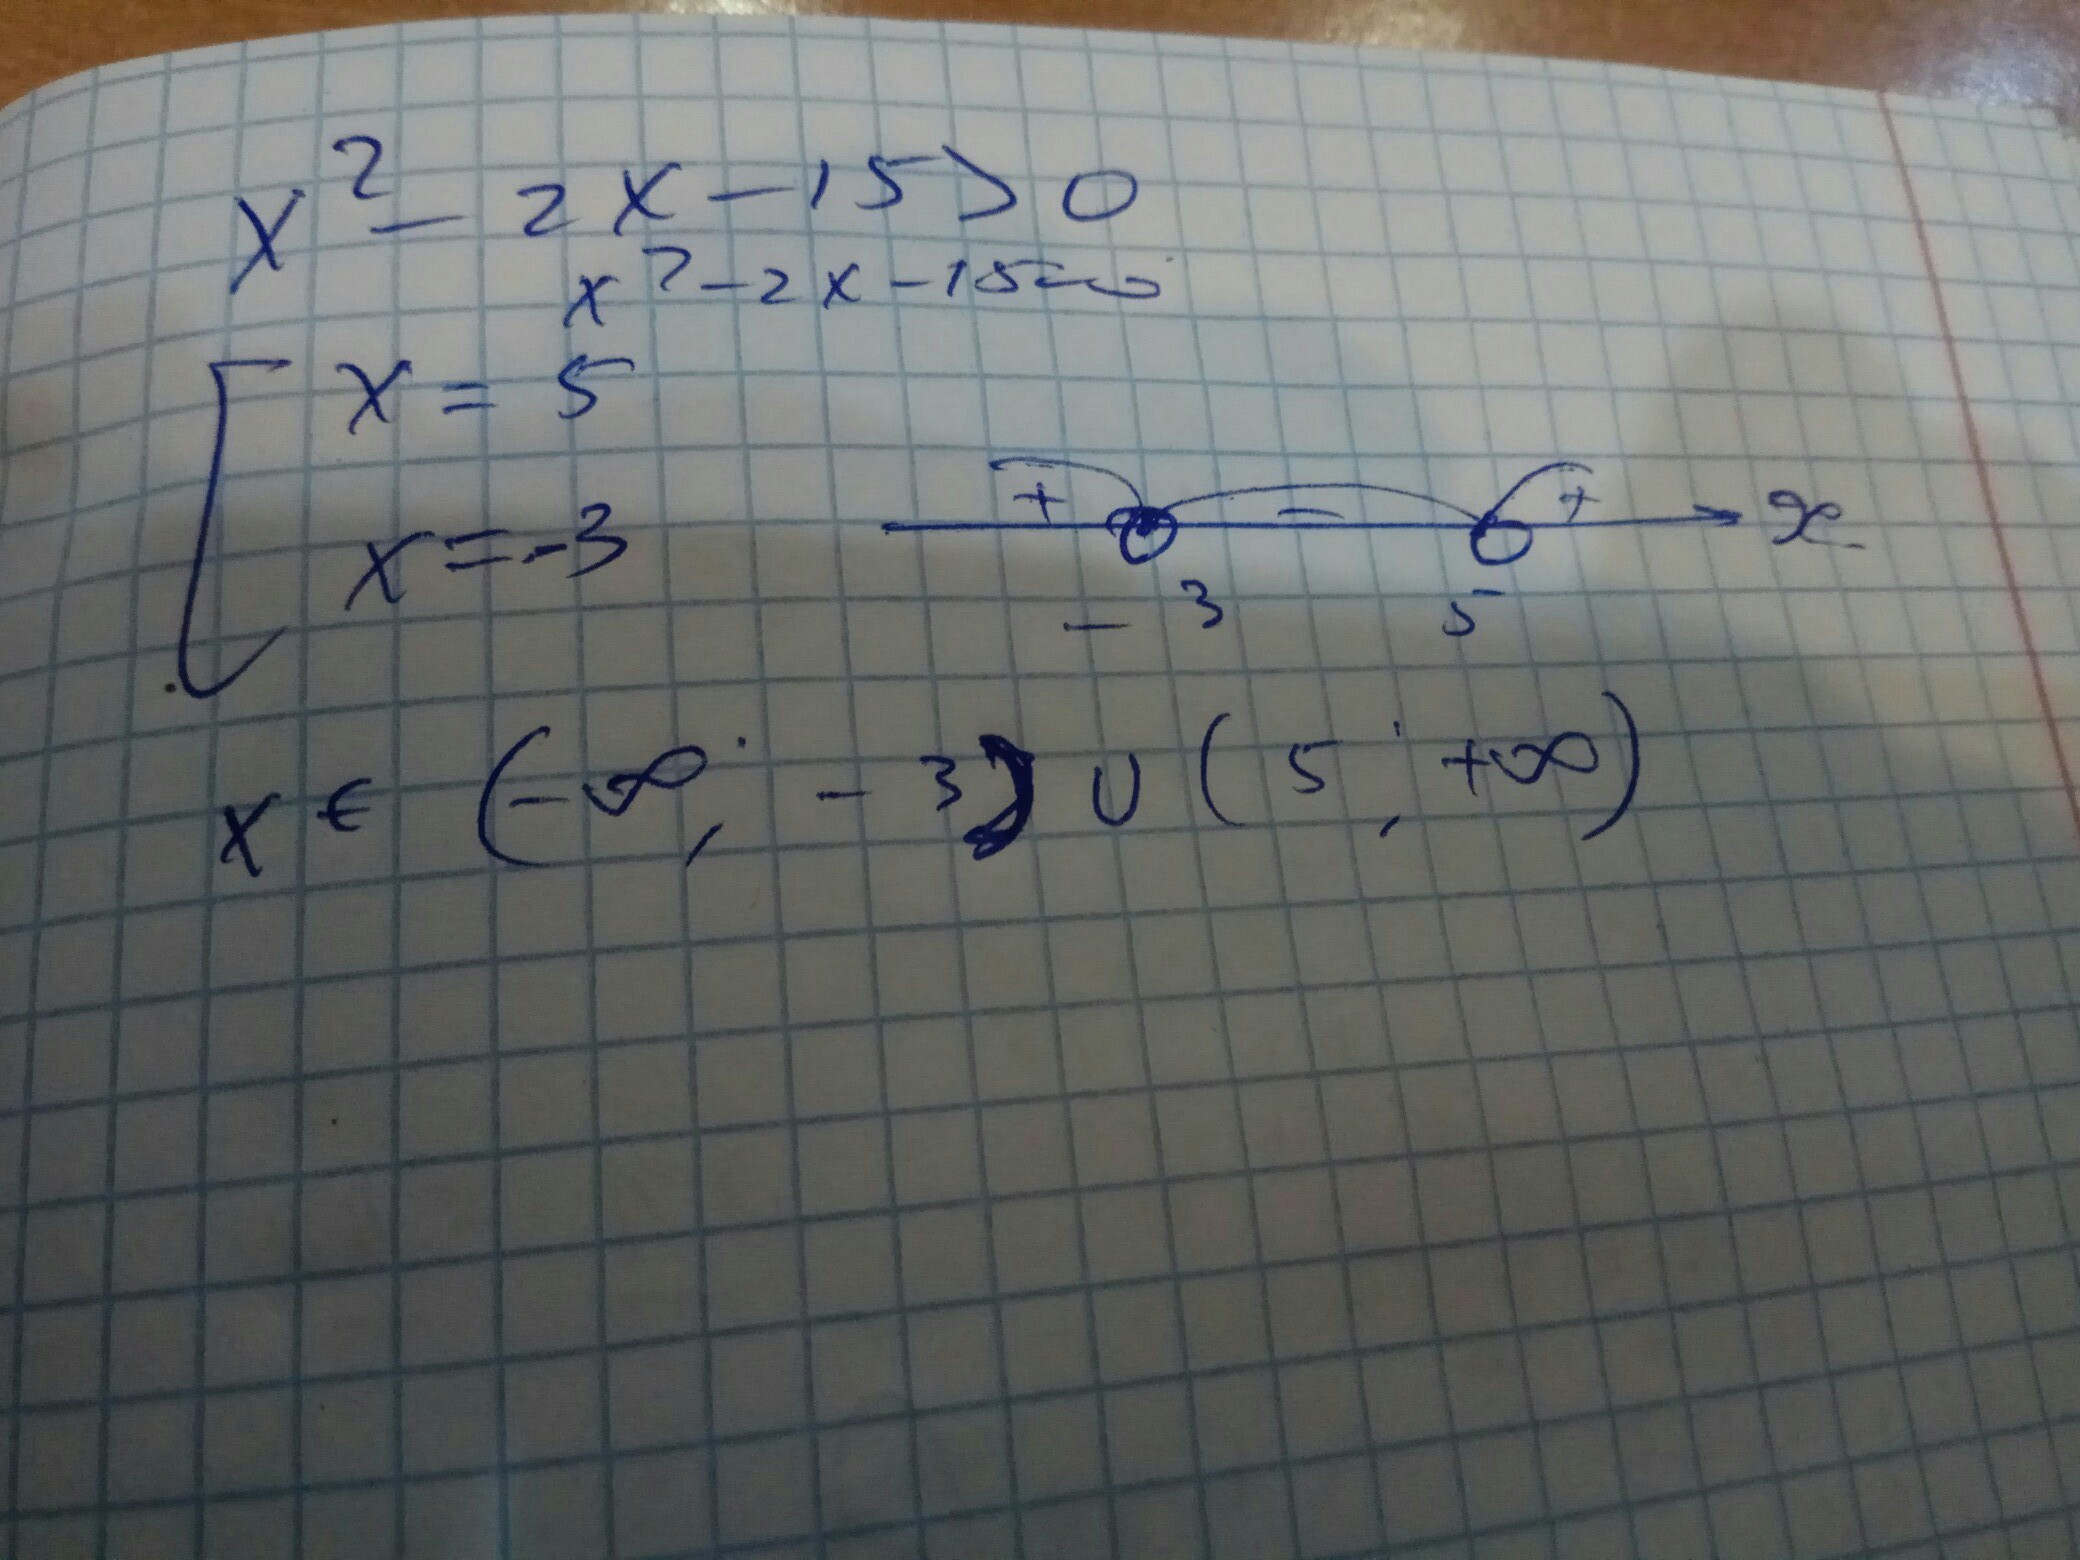 x² - 2x - 15 > 0
x² - 2x - 15 = 0
[ x = 5
x = -3
+ - + x
-3 5
x ∈ (-∞; -3) ∪ (5; +∞)